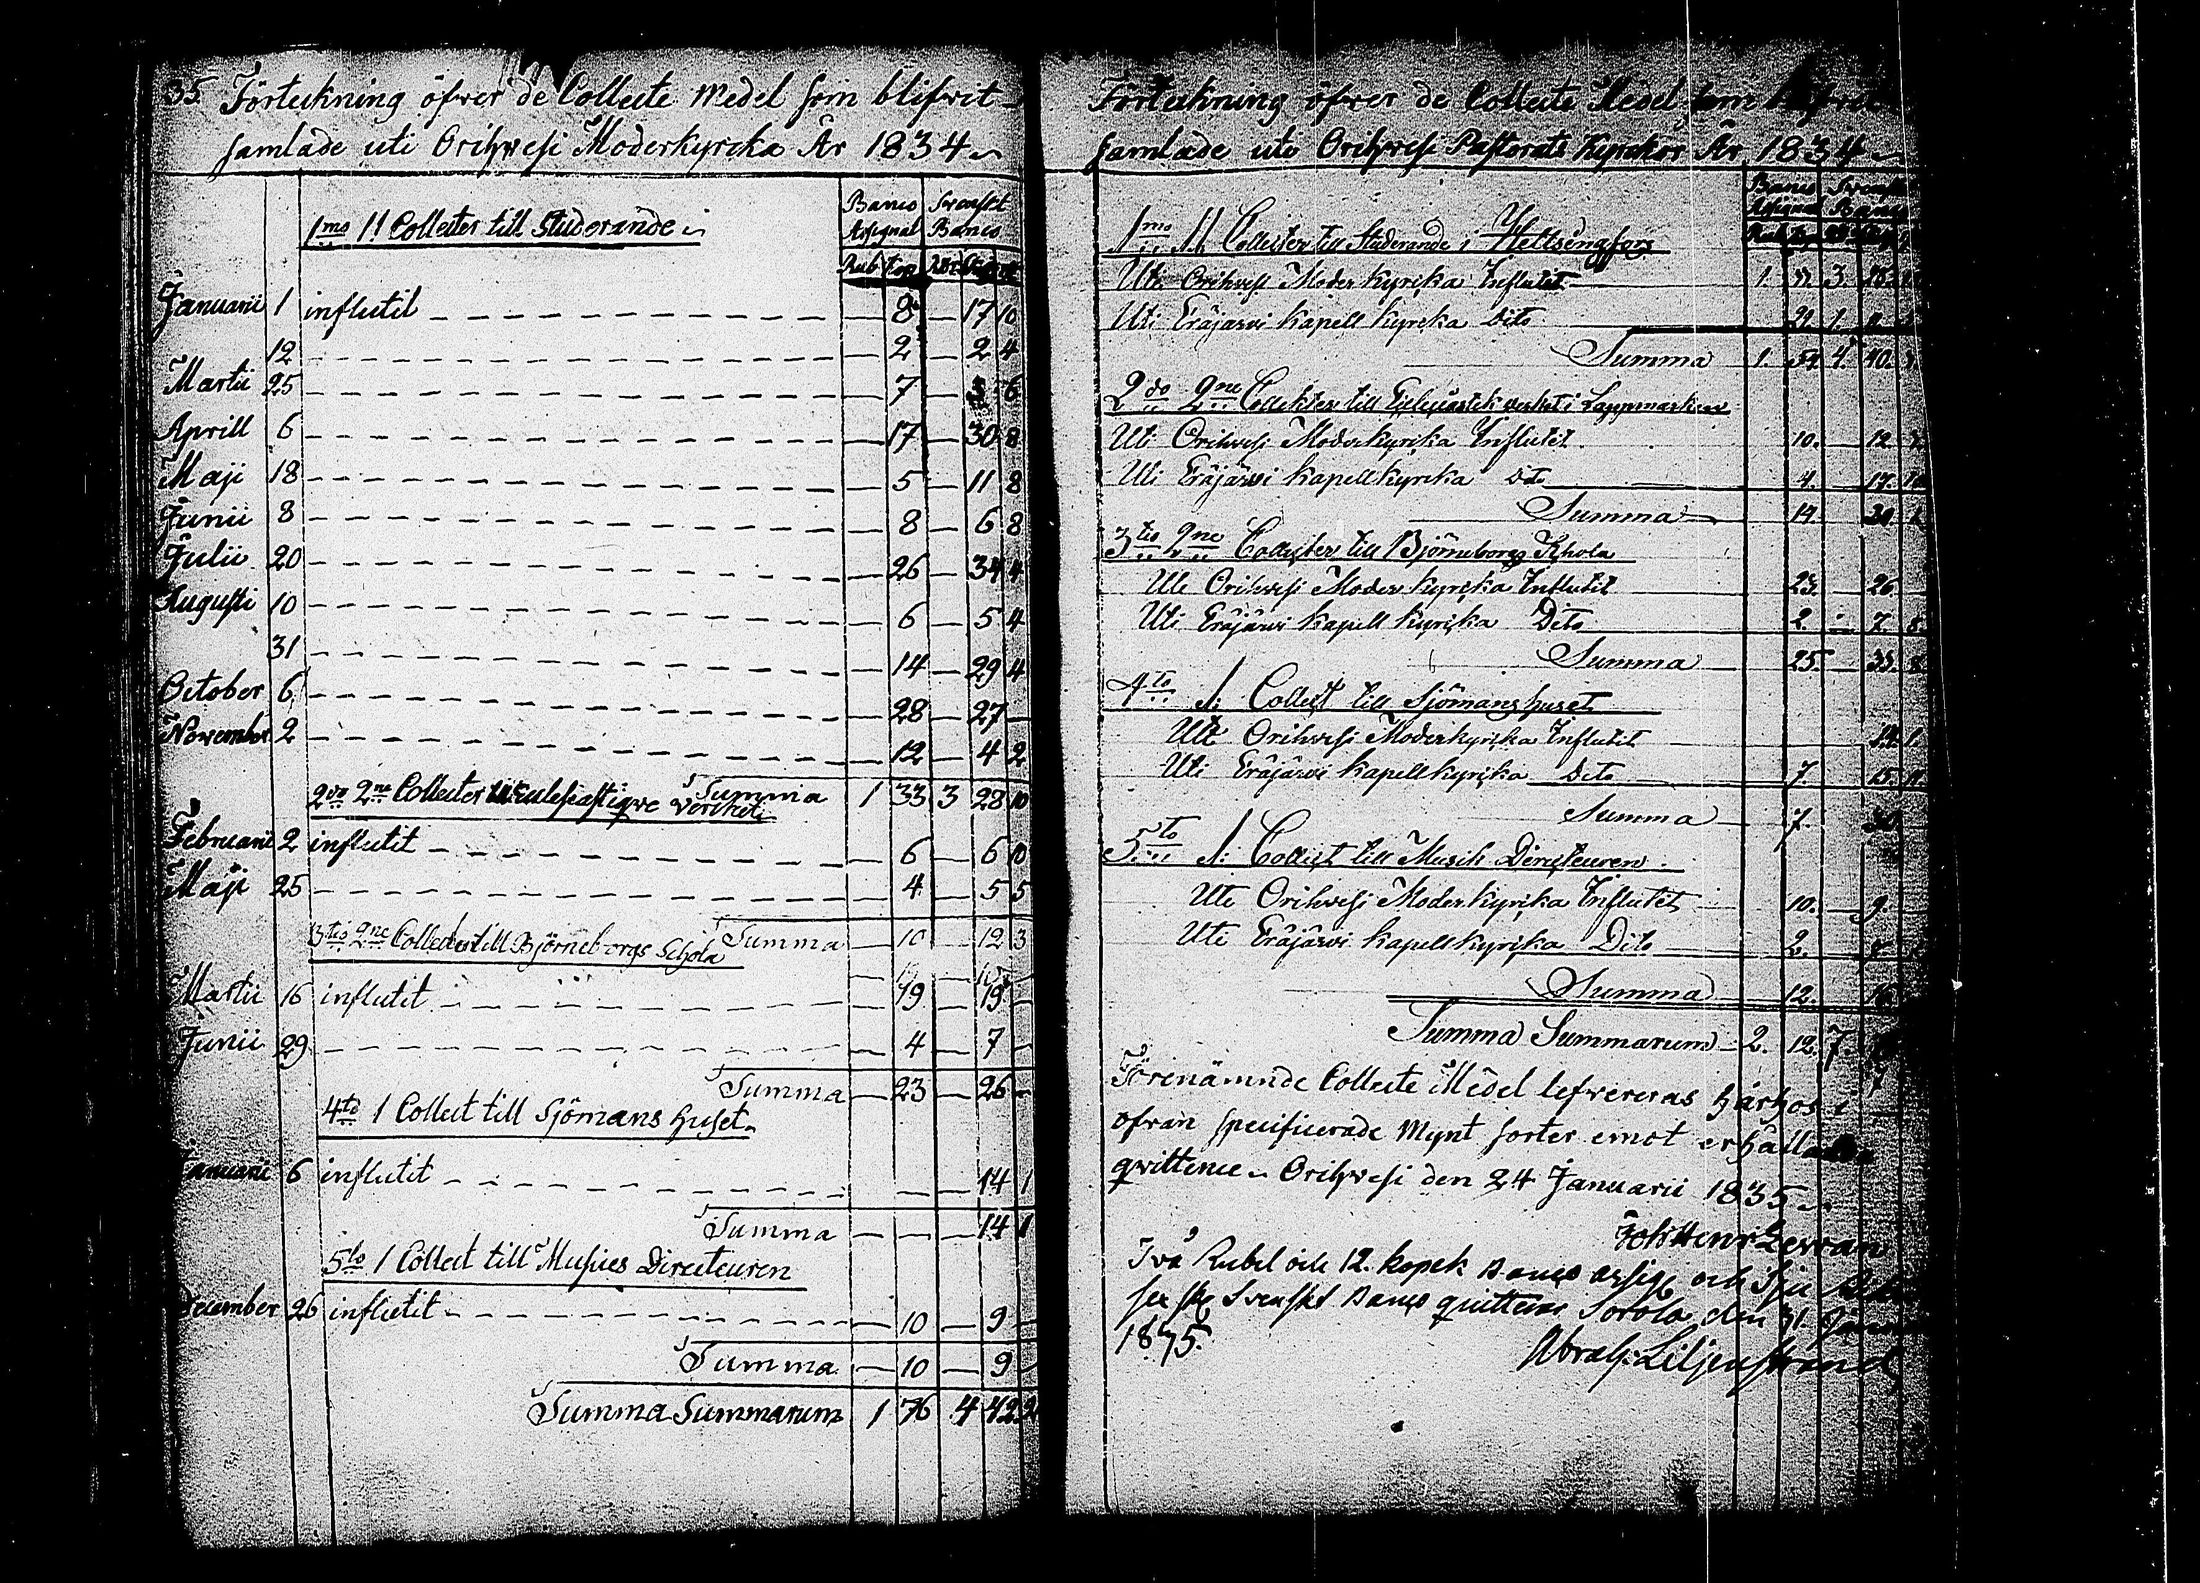 35. Förteckning öfwer de Collecte Medel som blifwit
samlade uti Orihwesi Moderkyrcka År 1834
Banco Svenskt
1mo 11 Collecter till Studerande
Assignat Banco
Rub Kop Rdr
Januarii 1 influtit 8 17 10
12 2 2 4
Martii 25 7 3 6
Aprill 6 17 30 8
Maji 18 5 11 8
Junii 8 8 6 8
Julii 20 26 34 4
Augusti 10 6 5 4
31 14 29 4
October 6 28 27
November 2 12 4 2
Summa 1 33 3 28 10
2do 2ne Collecter till Eclesiastiqve Verket
Februarii 2 influtit 6 6 10
Maji 25 4 5 5
Summa 10 12 3
3tio 2ne Collecter till Björneborgs Schola
Martii 16 influtit 19 19
Junii 29 4 7
Summa 23 26
4to 1 Collect till Sjömans huset
Januarii 6 influtit 14 1
Summa 14 1
5to 1 Collect till Musics Directeuren
December 26 influtit 10 9
Summa 10 9
Summa Summarum 1 76 4 42 2
Förteckning öfwer de Collecte Medel som
samlade uti Orihwesi Pastorats Kyrckor År 1834
Banco Svenskt
Assignat Banco
1mo 11 Collecter till Studerande i Hellsingfors
Uti Orihwesi Moderkyrcka Influtit 1. 3.
Uti Eräjärvi Kapell kyrcka Dito 21. 1.
Summa 1. 54. 4. 40.
2do 2ne Collekter till Eclesiastik verket i Lappmarken
Uti Orihwesi Moderkyrcka Influtit 10. 12.
Uti Eräjärvi Kapellkyrcka Dito 4. 17.
Summa 14.
3tio 2ne Collecter till Björneborgs Schola
Uti Orihwesi Moder kyrcka Influtit 23. 26
Uti Eräjärvi Kapell kyrcka Dito 2. 7.
Summa 25. 33.
4to 1. Collect till Sjömanshuset
Uti Orihwesi Moderkyrcka Influtit 14. 1.
Uti Eräjärvi Kapellkyrcka Dito 7. 15.
Summa 7.
5to 1. Collect till Musik Directeuren
Uti Orihwesi Moderkyrcka Influtit 10. 9.
Uti Eräjärvi Kapellkyrcka Dito 2.
Summa 12.
Summa Summarum 2. 12. 7.
Förenämnde Collecte Medel lefwereras härhos i
ofwan specificerade Mynt sorter emot erhållande
qwittence Orihwesi den 24 Januarii 1835
Joh Henr
Två Rubel och 12. kopek Banco assign och Sju
sex sk Svenskt Banco quitteras Sorola, den 31. Janu
1835.
Abrah: Liljenstrand